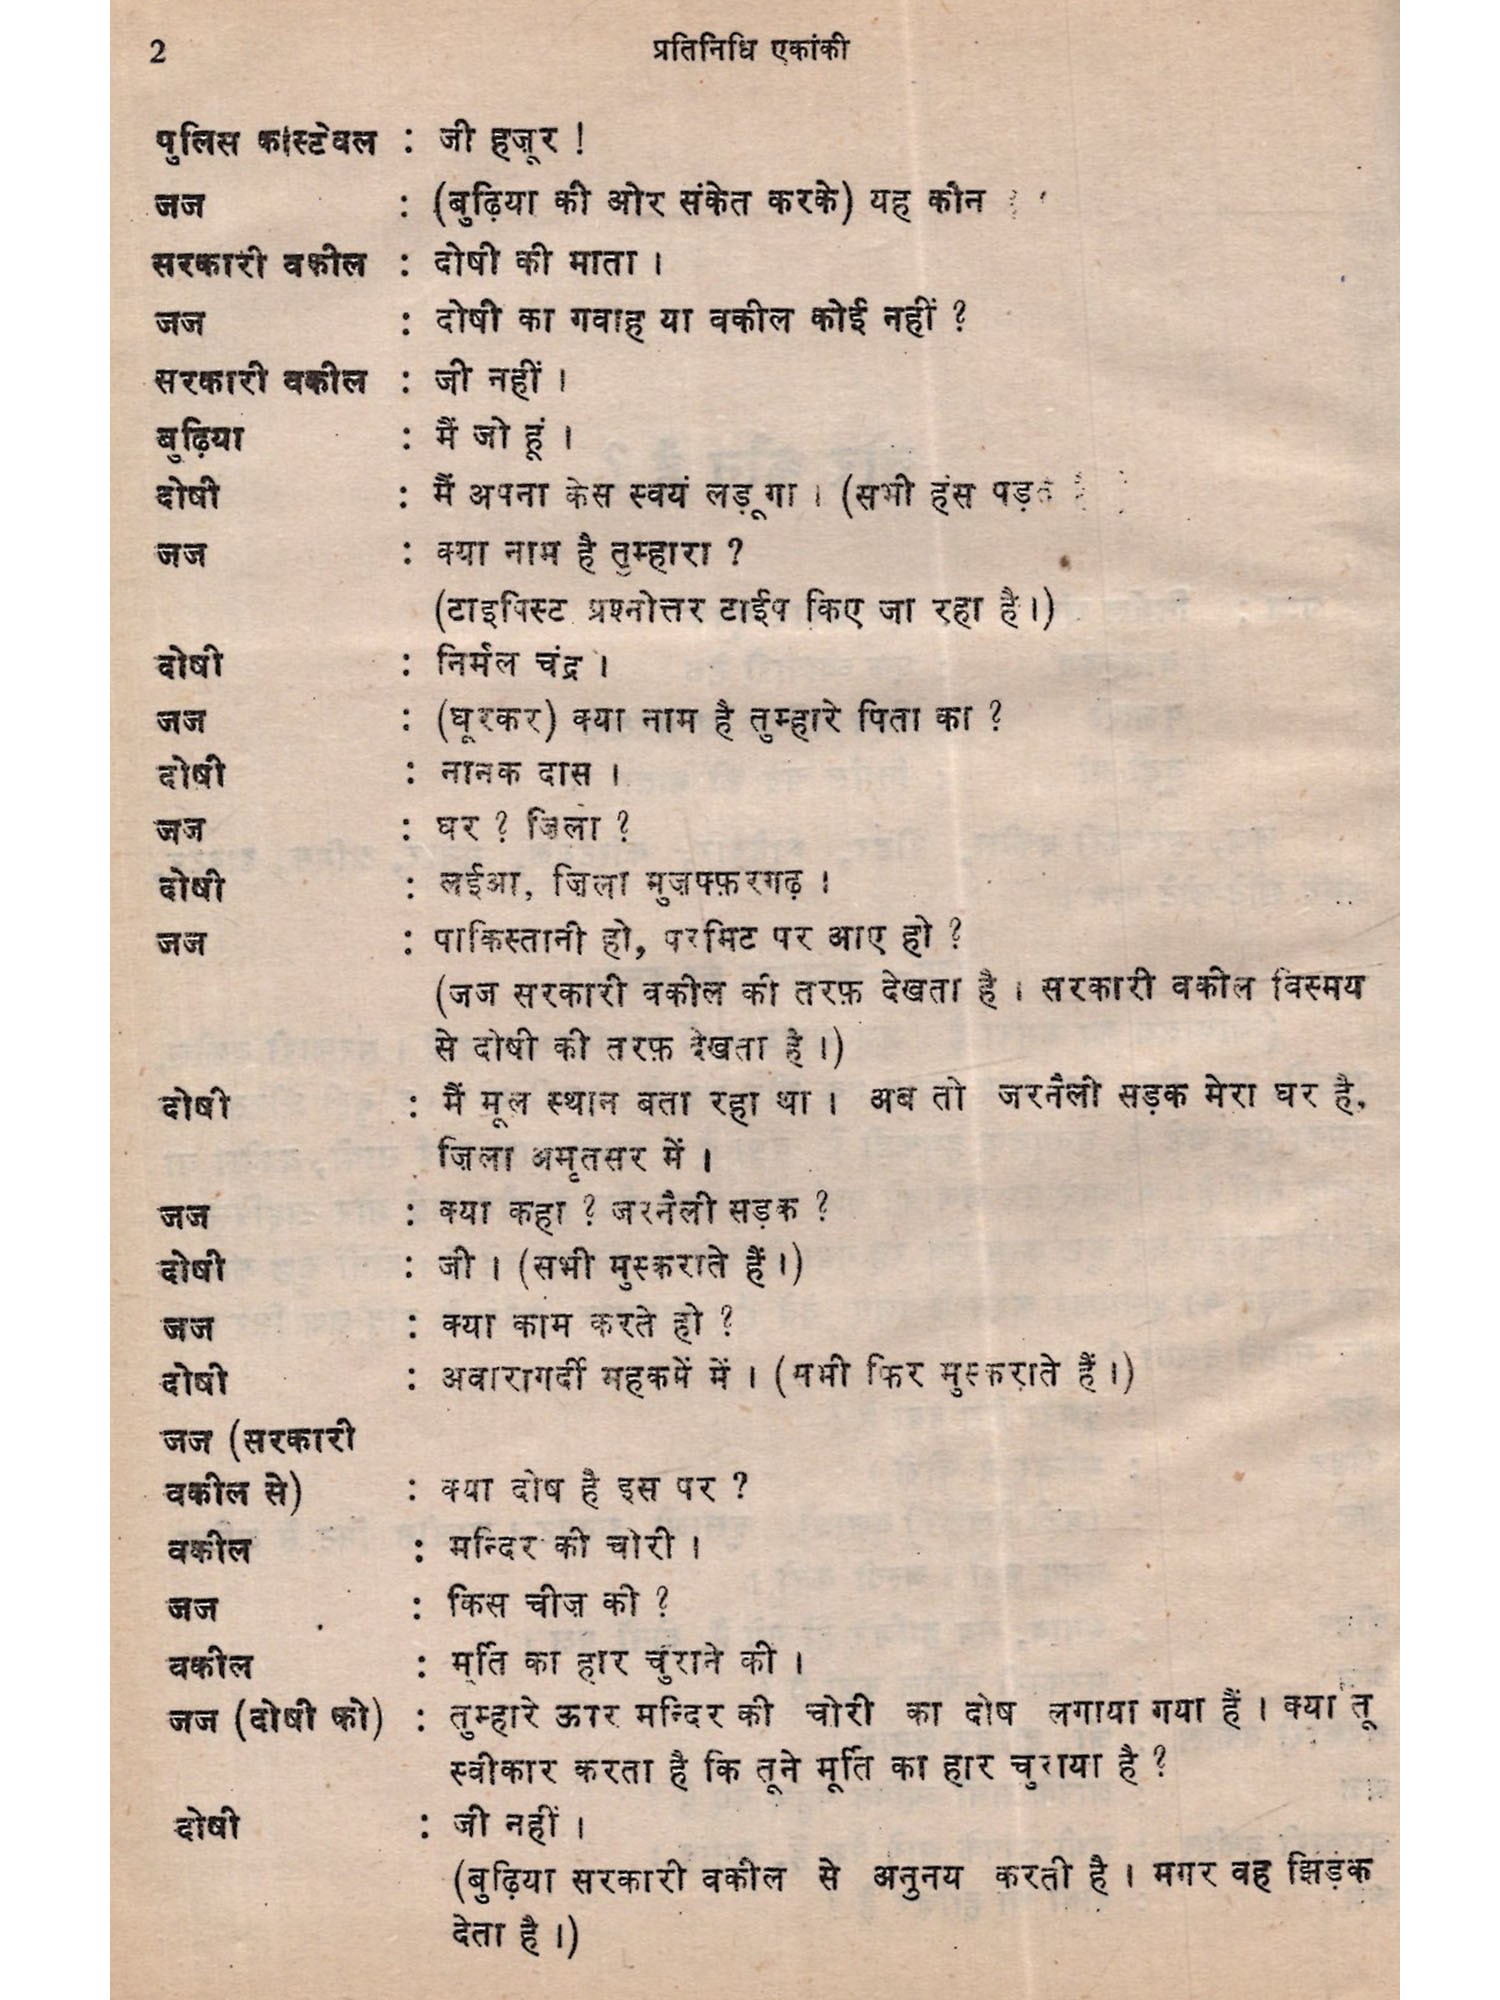 2 प्रतिनिधि एकांकी
पुलिस कांस्टेबल : जी हज़ूर !
जज : (बुढ़िया की ओर संकेत करके) यह कौन
सरकारी वकील : दोषी की माता ।
जज : दोषी का गवाह या वकील कोई नहीं ?
सरकारी वकील : जी नहीं ।
बुढ़िया : मैं जो हूं ।
दोषी : मैं अपना केस स्वयं लड़ूगा । (सभी हंस पड़ते
जज : क्या नाम है तुम्हारा ?
(टाइपिस्ट प्रश्नोत्तर टाईप किए जा रहा है।)
दोषी : निर्मल चंद्र ।
जज : (घूरकर) क्या नाम है तुम्हारे पिता का ?
दोषी : नानक दास ।
जज : घर ? ज़िला ?
दोषी : लईआ, ज़िला मुज़फ्फ़रगढ़ ।
जज : पाकिस्तानी हो, परमिट पर आए हो ?
(जज सरकारी वकील की तरफ़ देखता है । सरकारी वकील विस्मय
से दोषी की तरफ़ देखता है ।)
दोषी : मैं मूल स्थान बता रहा था । अब तो जरनैली सड़क मेरा घर है,
ज़िला अमृतसर में ।
जज : क्या कहा ? जरनैली सड़क ?
दोषी : जी । (सभी मुस्कराते हैं ।)
जज : क्या काम करते हो ?
दोषी : अवारागर्दी महकमें में । (सभी फिर मुस्कराते हैं ।)
जज (सरकारी
वकील से) : क्या दोष है इस पर ?
वकील : मन्दिर की चोरी ।
जज : किस चीज़ की ?
वकील : मूर्ति का हार चुराने की ।
जज (दोषी को) : तुम्हारे ऊार मन्दिर की चोरी का दोष लगाया गया हैं । क्या तू
स्वीकार करता है कि तूने मूर्ति का हार चुराया है ?
दोषी : जी नहीं ।
(बुढ़िया सरकारी वकील से अनुनय करती है । मगर वह झिड़क
देता है ।)